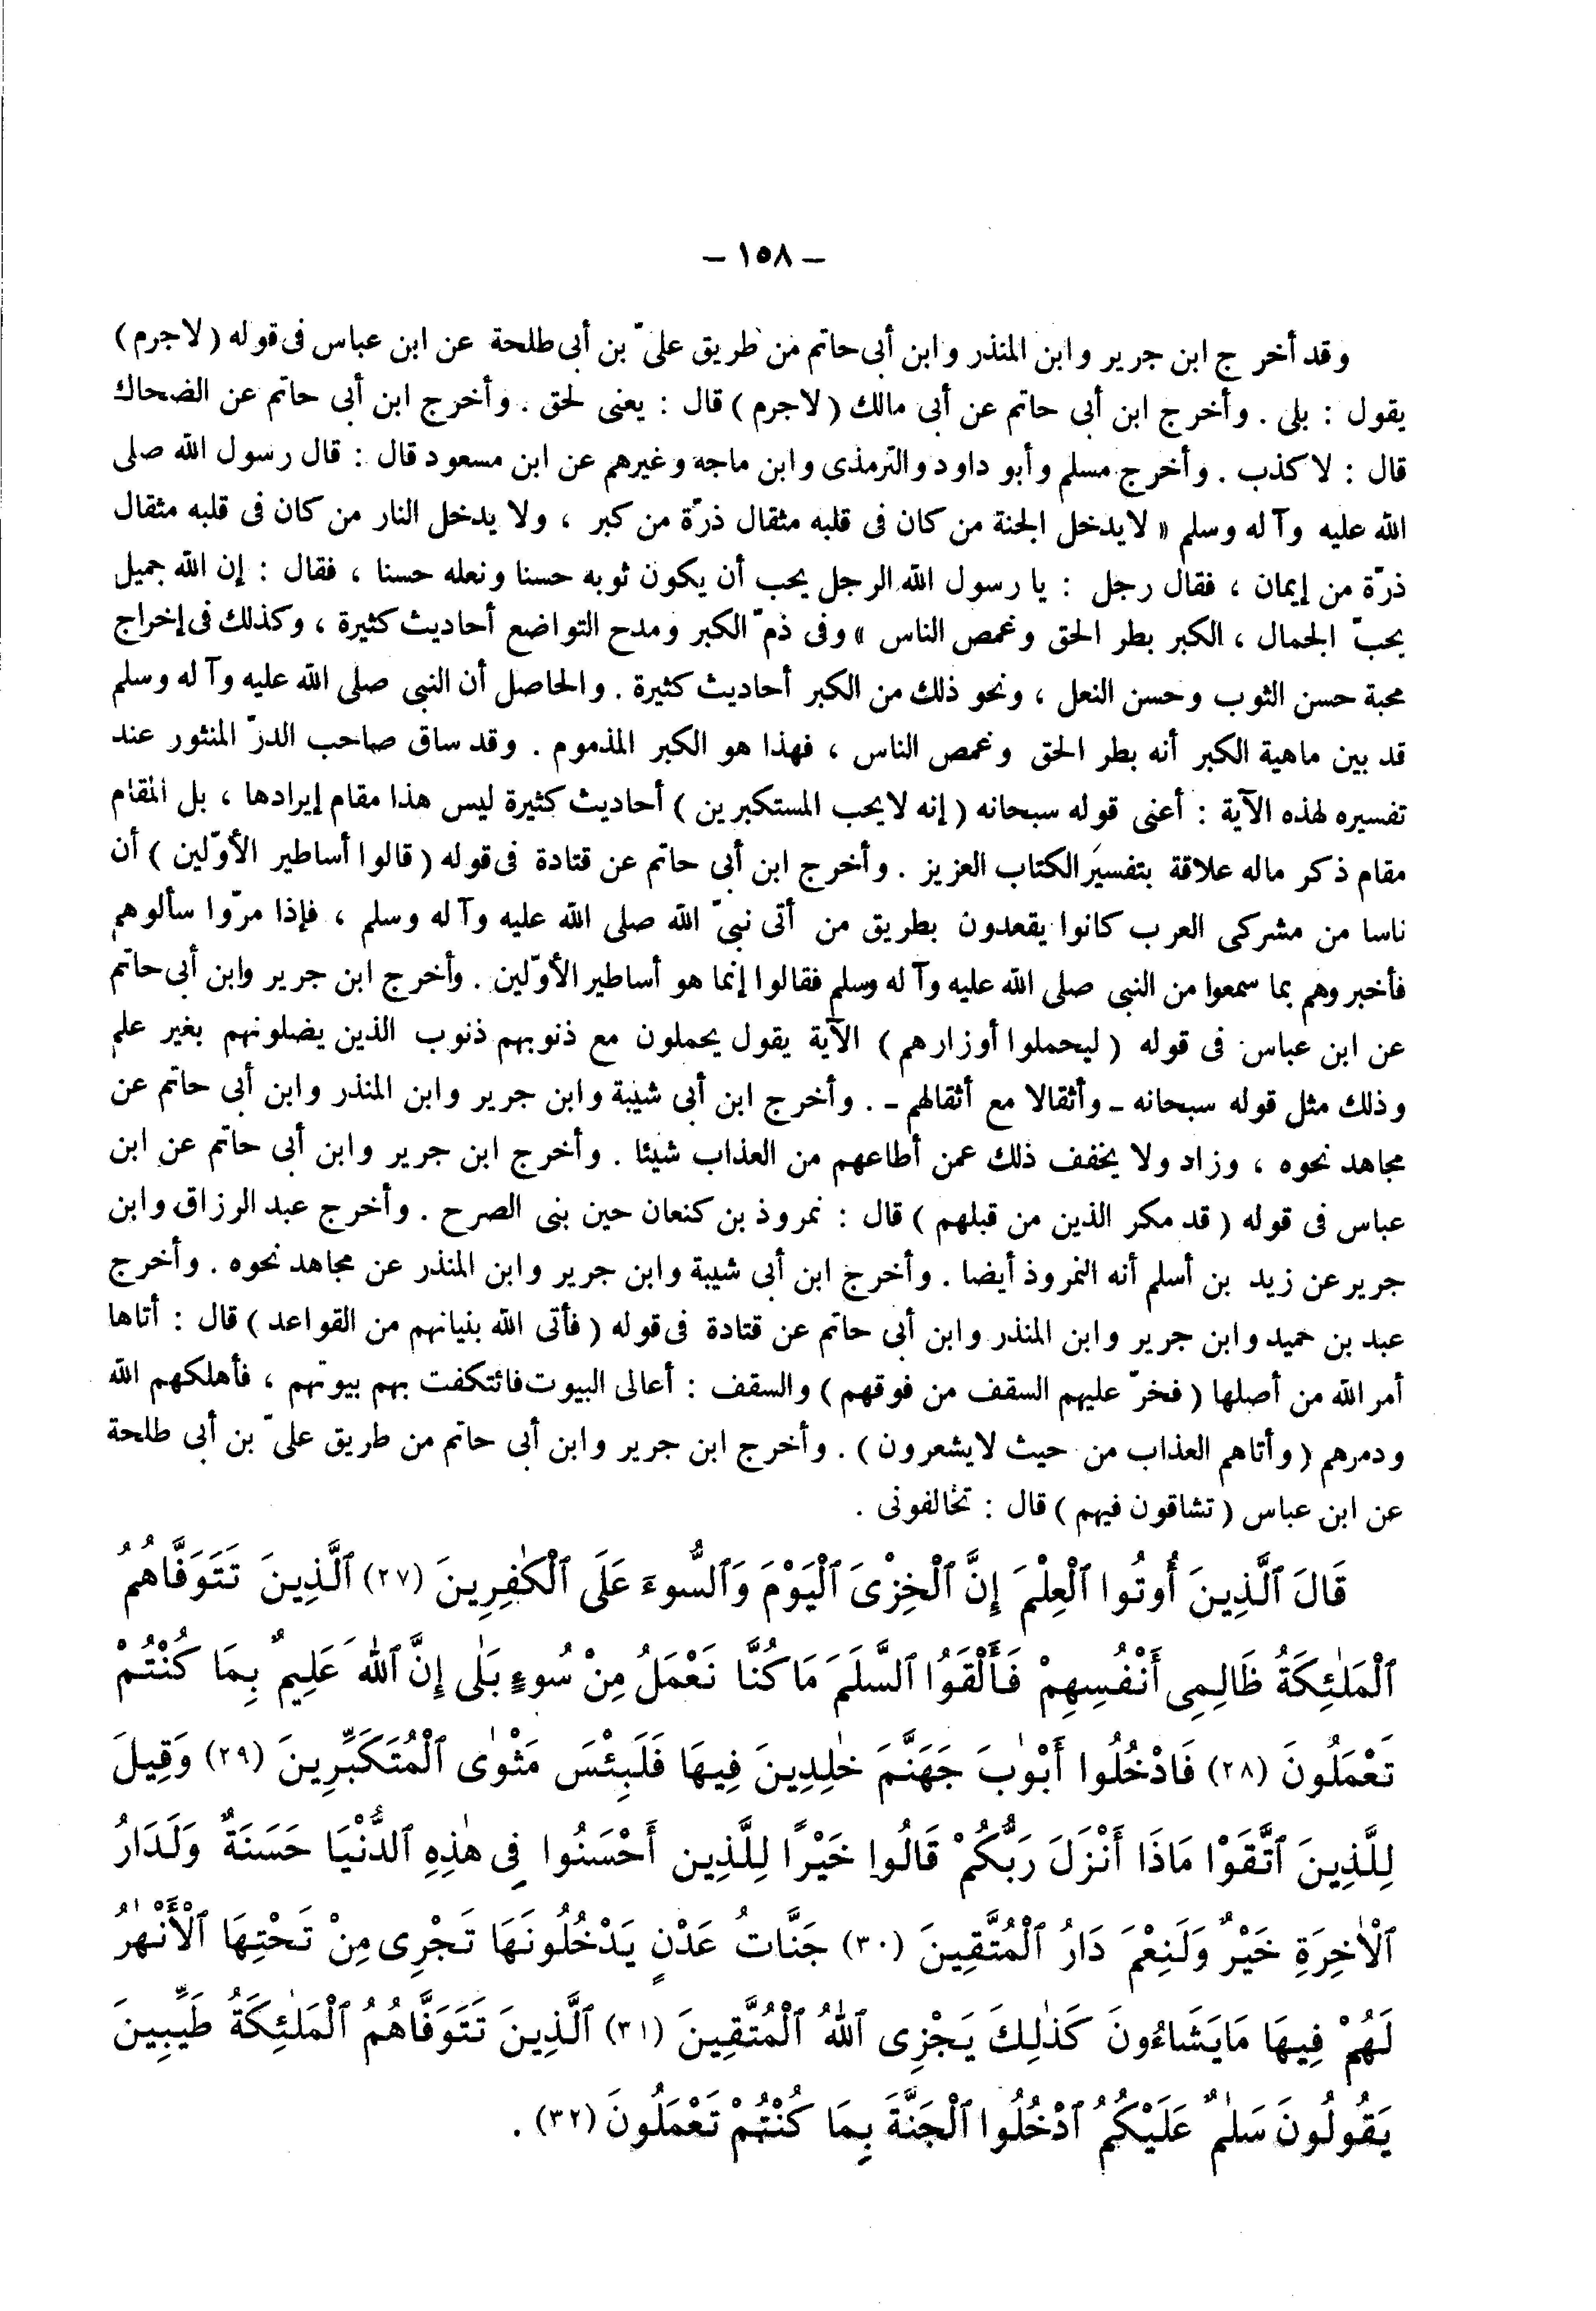 – ١٥٨ –
وقد أخرج ابن جرير وابن المنذر وابن أبى حاتم من طريق علىّ بن أبى طلحة عن ابن عباس فى قوله ( لاجرم )
يقول : بلى . وأخرج ابن أبى حاتم عن أبى مالك ( لاجرم ) قال : يعنى لحق . وأخرج ابن أبى حاتم عن الضحاك
قال : لا كذب . وأخرج مسلم وأبو داود والترمذى وابن ماجه وغيرهم عن ابن مسعود قال : قال رسول الله صلى
الله عليه وآله وسلم « لايدخل الجنة من كان فى قلبه مثقال ذرّة من كبر ، ولا يدخل النار من كان فى قلبه مثقال
ذرّة من إيمان ، فقال رجل : يا رسول الله الرجل يحب أن يكون ثوبه حسنا ونعله حسنا ، فقال : إن الله جميل
يحبّ الجمال ، الكبر بطر الحق وغمص الناس » وفى ذمّ الكبر ومدح التواضع أحاديث كثيرة ، وكذلك فى إخراج
محبة حسن الثوب وحسن النعل ، ونحو ذلك من الكبر أحاديث كثيرة . والحاصل أن النبى صلى الله عليه وآله وسلم
قد بين ماهية الكبر أنه بطر الحق وغمص الناس ، فهذا هو الكبر المذموم . وقد ساق صاحب الدرّ المنثور عند
تفسيره لهذه الآية : أعنى قوله سبحانه ( إنه لايحب المستكبرين ) أحاديث كثيرة ليس هذا مقام إيرادها ، بل المقام
مقام ذكر ماله علاقة بتفسير الكتاب العزيز . وأخرج ابن أبى حاتم عن قتادة فى قوله ( قالوا أساطير الأوّلين ) أن
ناسا من مشركى العرب كانوا يقعدون بطريق من أتى نبىّ الله صلى الله عليه وآله وسلم ، فإذا مرّوا سألوهم
فأخبروهم بما سمعوا من النبى صلى الله عليه وآله وسلم فقالوا إنما هو أساطير الأوّلين . وأخرج ابن جرير وابن أبى حاتم
عن ابن عباس فى قوله ( ليحملوا أوزارهم ) الآية يقول يحملون مع ذنوبهم ذنوب الذين يضلونهم بغير علم
وذلك مثل قوله سبحانه ـ وأثقالا مع أثقالهم ـ . وأخرج ابن أبى شيبة وابن جرير وابن المنذر وابن أبى حاتم عن
مجاهد نحوه ، وزاد ولا يخفف ذلك عمن أطاعهم من العذاب شيئا . وأخرج ابن جرير وابن أبى حاتم عن ابن
عباس فى قوله ( قد مكر الذين من قبلهم ) قال : نمروذ بن كنعان حين بنى الصرح . وأخرج عبد الرزاق وابن
جرير عن زيد بن أسلم أنه النمروذ أيضا . وأخرج ابن أبى شيبة وابن جرير وابن المنذر عن مجاهد نحوه . وأخرج
عبد بن حميد وابن جرير وابن المنذر وابن أبى حاتم عن قتادة فى قوله ( فأتى الله بنيانهم من القواعد ) قال : أتاها
أمر الله من أصلها ( فخرّ عليهم السقف من فوقهم ) والسقف : أعالى البيوت فائتكفت بهم بيوتهم ، فأهلكهم الله
ودمرهم ( وأتاهم العذاب من حيث لايشعرون ) . وأخرج ابن جرير وابن أبى حاتم من طريق علىّ بن أبى طلحة
عن ابن عباس ( تشاقون فيهم ) قال : تخالفونى .
قَالَ ٱلَّذِينَ أُوتُوا ٱلْعِلْمَ إِنَّ ٱلْخِزْىَ ٱلْيَوْمَ وَٱلسُّوءَ عَلَى ٱلْكٰفِرِينَ (٢٧) ٱلَّذِينَ تَتَوَفَّاهُمُ
ٱلْمَلٰئِكَةُ ظَالِمِى أَنْفُسِهِمْ فَأَلْقَوُا ٱلسَّلَمَ مَاكُنَّا نَعْمَلُ مِنْ سُوءٍ بَلٰى إِنَّ ٱللهَ عَلِيمٌ بِمَا كُنْتُمْ
تَعْمَلُونَ (٢٨) فَادْخُلُوا أَبْوٰبَ جَهَنَّمَ خٰلِدِينَ فِيهَا فَلَبِئْسَ مَثْوٰى ٱلْمُتَكَبِّرِينَ (٢٩) وَقِيلَ
لِلَّذِينَ ٱتَّقَوْا مَاذَا أَنْزَلَ رَبُّكُمْ قَالُوا خَيْرًا لِلَّذِين أَحْسَنُوا فِى هٰذِهِ ٱلدُّنْيَا حَسَنَةٌ وَلَدَارُ
ٱلْاٰخِرَةِ خَيْرٌ وَلَنِعْمَ دَارُ ٱلْمُتَّقِينَ (٣٠) جَنَّاتُ عَدْنٍ يَدْخُلُونَهَا تَجْرِى مِنْ تَحْتِهَا ٱلْأَنْهٰرُ
لَهُمْ فِيهَا مَايَشَاءُونَ كَذٰلِكَ يَجْزِى ٱللهُ ٱلْمُتَّقِينَ (٣١) ٱلَّذِينَ تَتَوَفَّاهُمُ ٱلْمَلٰئِكَةُ طَيِّبِينَ
يَقُولُونَ سَلٰمٌ عَلَيْكُمُ ٱدْخُلُوا ٱلْجَنَّةَ بِمَا كُنْتُمْ تَعْمَلُونَ (٣٢) .